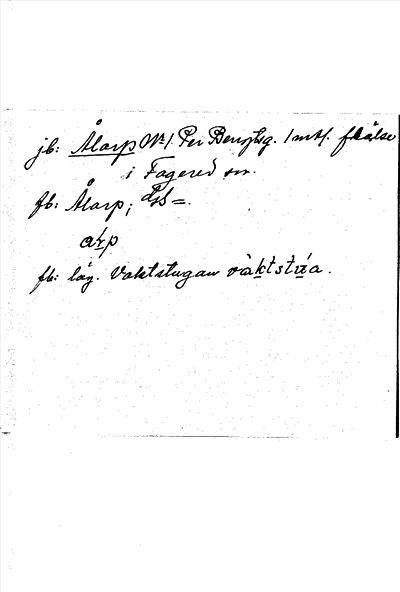 jb: Ålarp No 1. Per Bengtsg. 1 mtl. frälse
i Fagered sn.
fb: Ålarp; dss =.
arp
fb: läg. Vaktstugan vàktstúa.